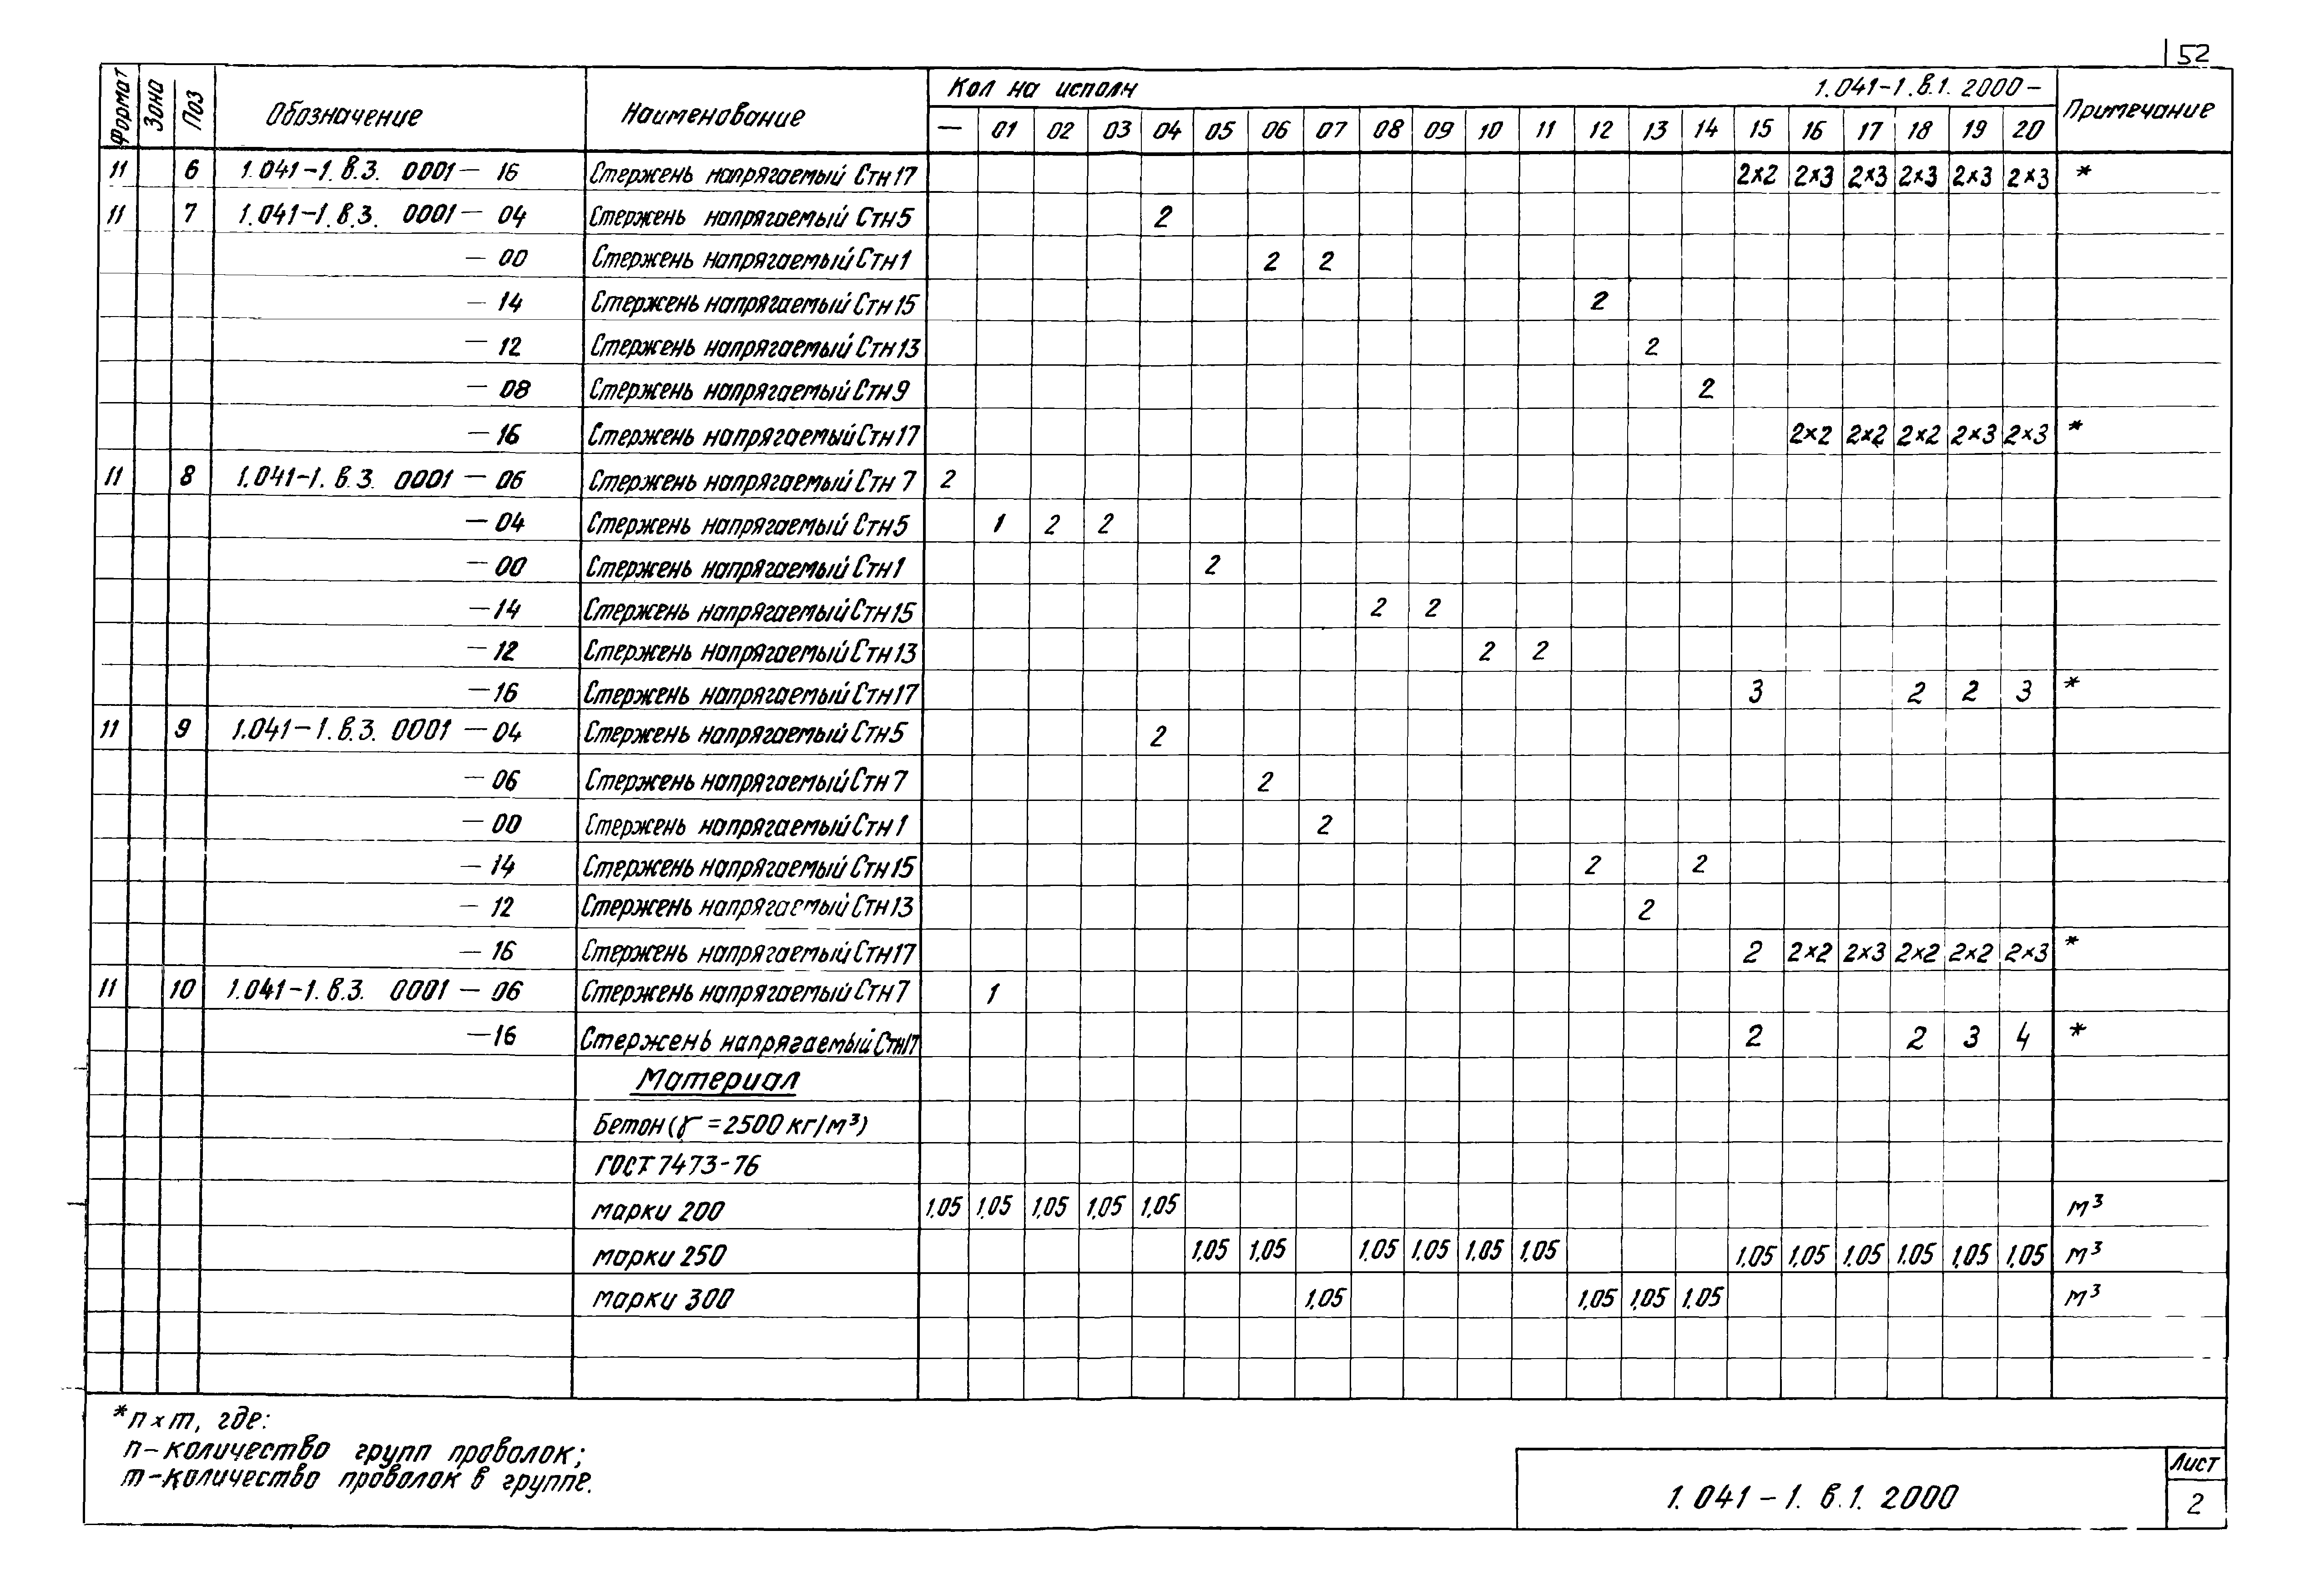 52
Формат Зона Поз Обозначение Наименование Кол на исполн 1.041-1.в.1.2000- Примечание
— 01 02 03 04 05 06 07 08 09 10 11 12 13 14 15 16 17 18 19 20
11 6 1.041-1.в.3. 0001- 16 Стержень напрягаемый Стн17 2×2 2×3 2×3 2×3 2×3 2×3 *
11 7 1.041-1.в.3. 0001- 04 Стержень напрягаемый Стн5 2
- 00 Стержень напрягаемый Стн1 2 2
- 14 Стержень напрягаемый Стн15 2
- 12 Стержень напрягаемый Стн13 2
- 08 Стержень напрягаемый Стн9 2
- 16 Стержень напрягаемый Стн17 2×2 2×2 2×2 2×3 2×3 *
11 8 1.041-1.в.3. 0001- 06 Стержень напрягаемый Стн 7 2
- 04 Стержень напрягаемый Стн5 1 2 2
- 00 Стержень напрягаемый Стн1 2
- 14 Стержень напрягаемый Стн15 2 2
- 12 Стержень напрягаемый Стн13 2 2
- 16 Стержень напрягаемый Стн17 3 2 2 3 *
11 9 1.041-1.в.3. 0001- 04 Стержень напрягаемый Стн5 2
- 06 Стержень напрягаемый Стн7 2
- 00 Стержень напрягаемый Стн1 2
- 14 Стержень напрягаемый Стн15 2 2
- 12 Стержень напрягаемый Стн13 2
- 16 Стержень напрягаемый Стн17 2 2×2 2×3 2×2 2×2 2×3 *
11 10 1.041-1.в.3. 0001- 06 Стержень напрягаемый Стн7 1
- 16 Стержень напрягаемый Стн17 2 2 3 4 *
Материал
Бетон (γ = 2500 кг/м³)
ГОСТ 7473-76
марки 200 1,05 1,05 1,05 1,05 1,05 м³
марки 250 1,05 1,05 1,05 1,05 1,05 1,05 1,05 1,05 1,05 1,05 1,05 1,05 м³
марки 300 1,05 1,05 1,05 1,05 м³
* n × m, где:
n-количество групп проволок;
m-количество проволок в группе.
1.041-1.в.1.2000
Лист
2